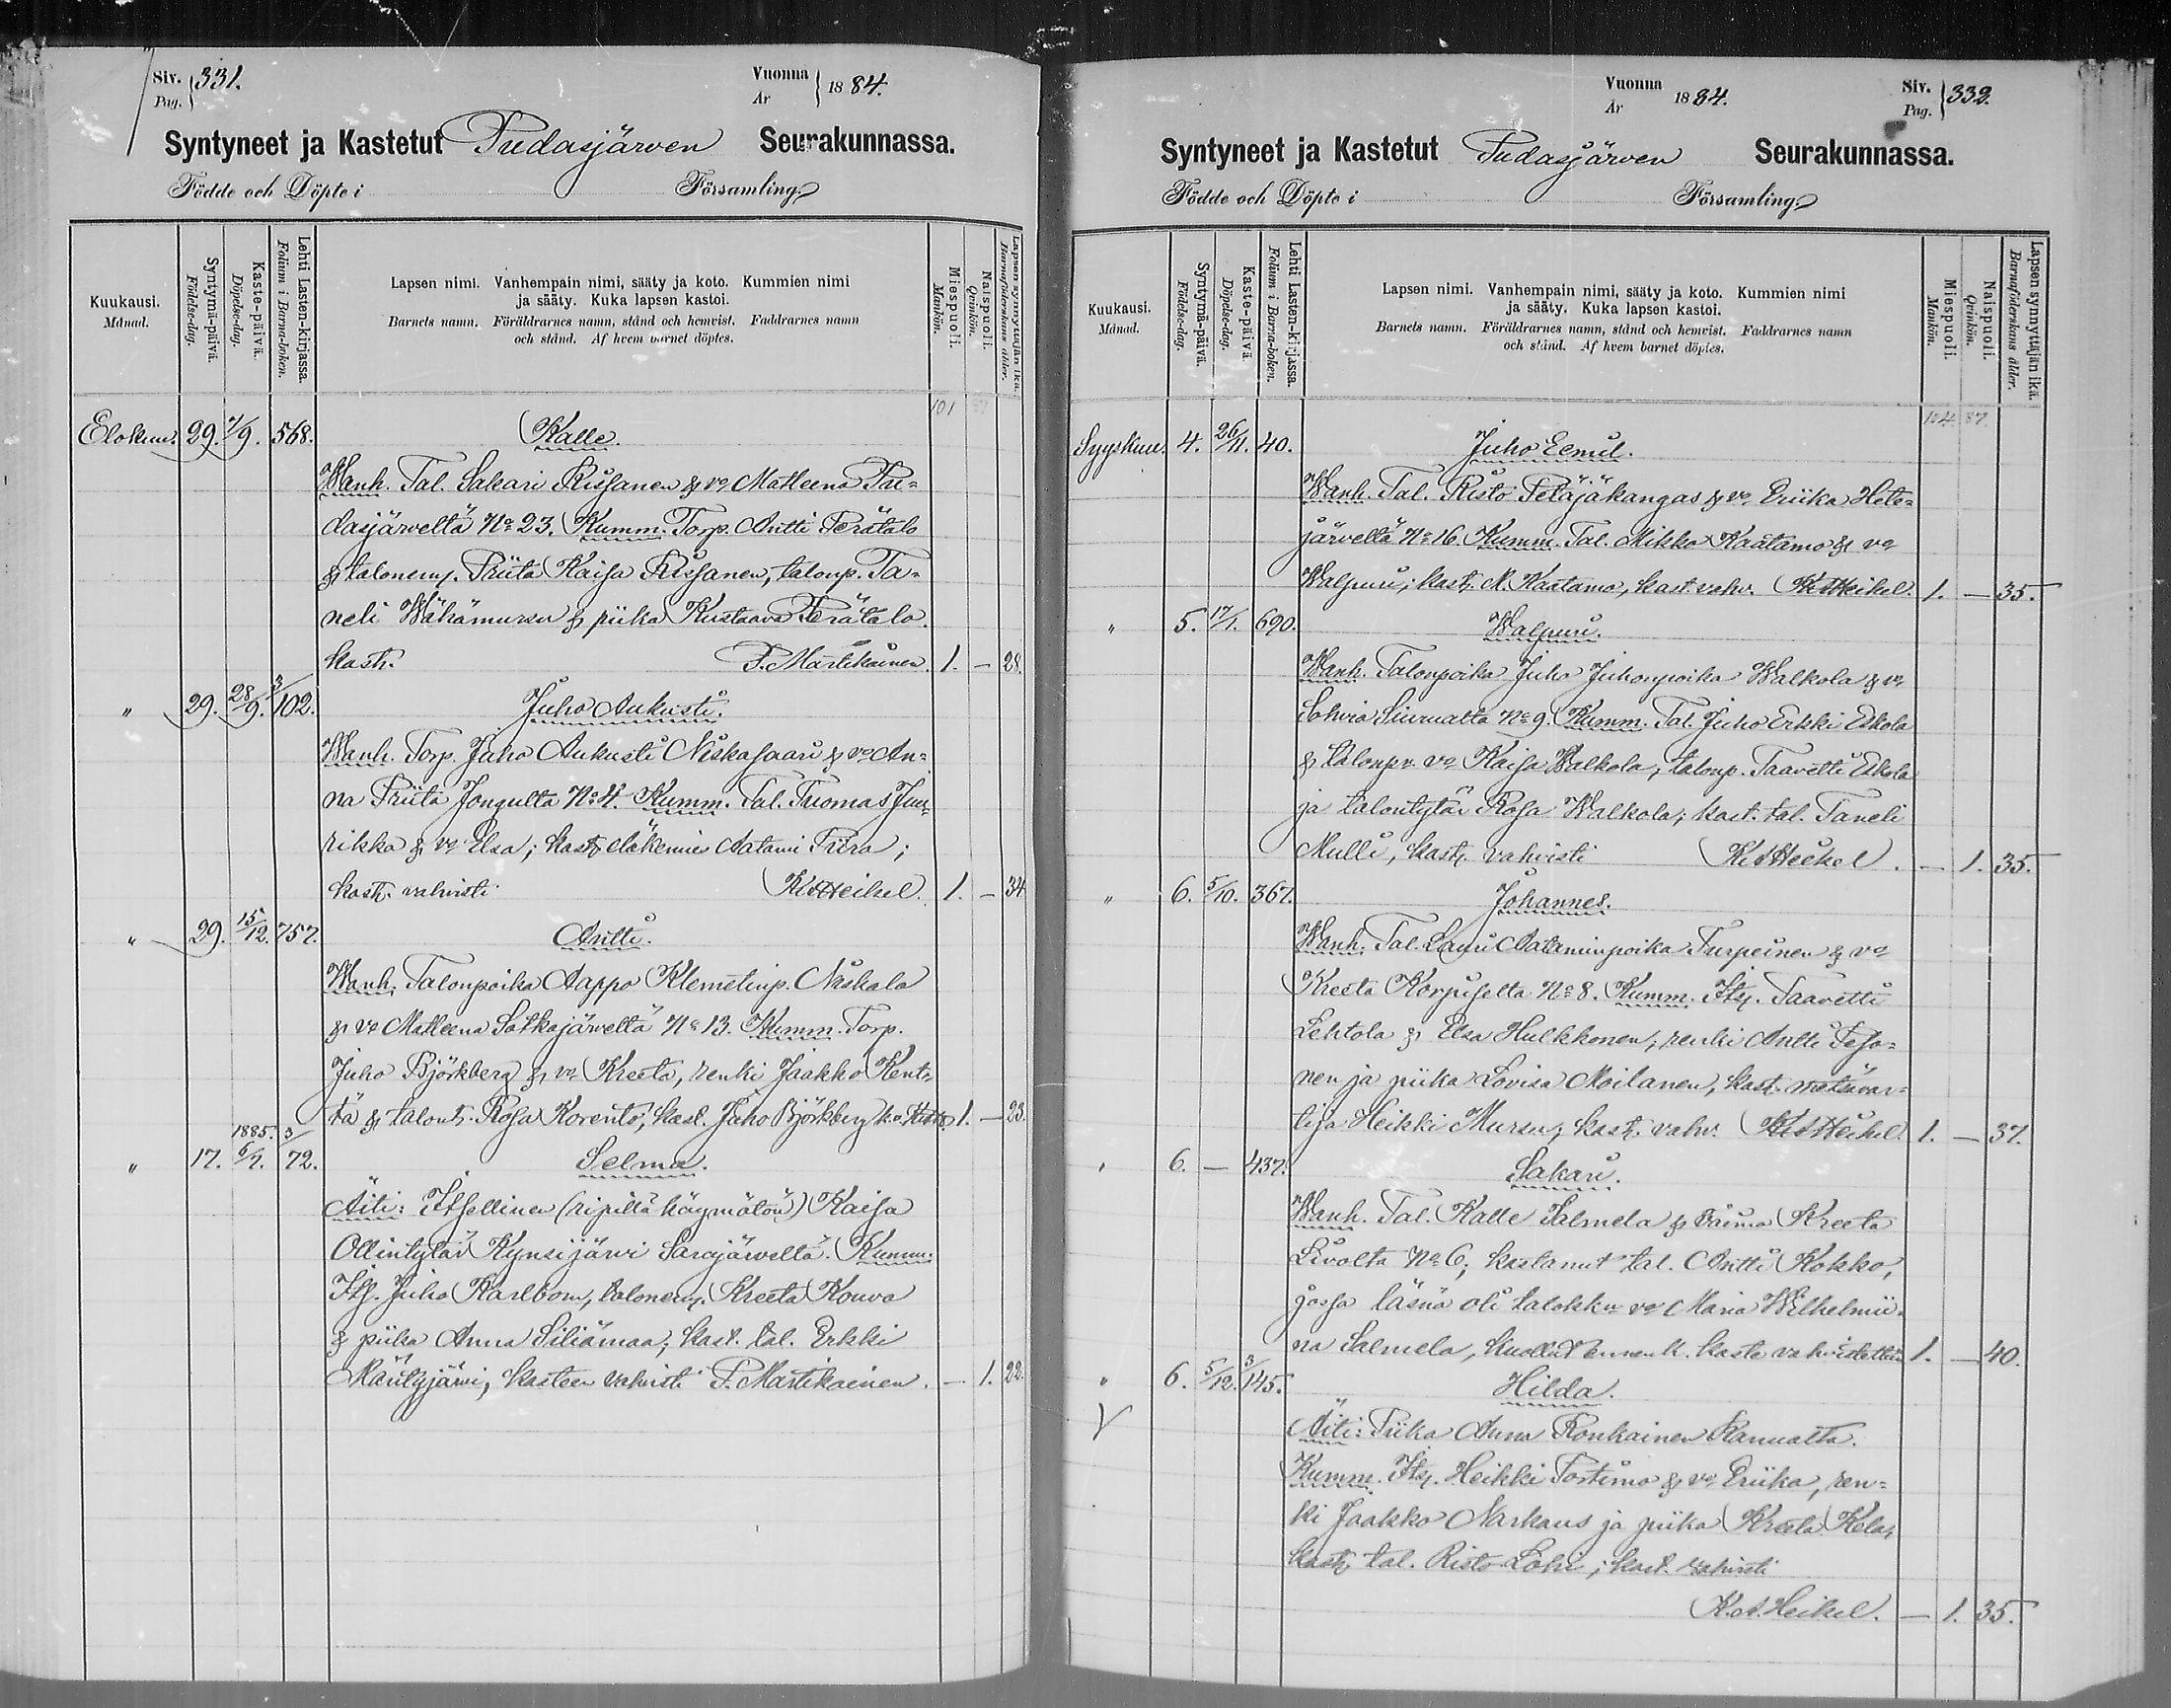 Siv. Pag. 331.
Vuonna År 1884.
Syntyneet ja Kastetut Pudasjärven Seurakunnassa.
Födde och Döpte i Församling.
Kuukausi. Månad.
Syntymä-päivä. Födelse-dag.
Kaste-päivä. Döpelse-dag.
Lehti Lasten-kirjassa. Folium i Barna-boken.
Lapsen nimi. Vanhempain nimi, sääty ja koto. Kummien nimi
ja sääty. Kuka lapsen kastoi.
Barnets namn. Föräldrarnes namn, stånd och hemvist. Faddrarnes namn
och stånd. Af hvem barnet döptes.
Miespuoli. Mankön.
Naispuoli. Qvinkön.
Lapsen synnyttäjän ikä. Barnaföderskans ålder.
101
Elokuu. 29. 7/9. 568. Kalle.
Wanh. Tal. Sakari Rissanen & vo Matleena Pu-
dasjärveltä No 23. Kumm. Torp. Antti Perätalo
& talonem. Priita Kaisa Rissanen, talonp. Ta-
neli Wähämursu & piika Kustaava Perätalo.
kast. P. Martikainen. 1. — 28.
" 29. 28/9. 3/102. Juho Aukusti.
Wanh. Torp. Juho Aukusti Niskasaari & vo An-
na Priita Jongulta No 4. Kumm. Tal. Tuomas Juu-
rikka & vo Elsa; kast. eläkemies Aatami Piira;
kast. vahvisti K. A. Heikel. 1. — 34
" 29. 15/12. 757. Antti.
Wanh. Talonpoika Aappo Klemetinp. Niskala
& vo Matleena Sotkajärveltä No 13. Kumm. Torp.
Juho Björkberg & vo Kreeta, renki Jaakko Kent-
tä & talont. Rosa Korento, kast. Juho Björkberg 1. — 23.
" 17. 1885. 6/7. 3/72. Selma.
Äiti: Itsellinen (ripillä käymätön) Kaisa
Ollintytär Kynsijärvi Sarajärveltä. Kumm.
Its. Juho Karlbom, talonem. Kreeta Kouva
& piika Anna Siliämaa; kast. tal. Erkki
Mäntyjärvi, kasteen vahvisti P. Martikainen. — 1. 22.
Vuonna År 1884.
Siv. Pag. 332.
Syntyneet ja Kastetut Pudasjärven Seurakunnassa.
Födde och Döpte i Församling.
Kuukausi. Månad.
Syntymä-päivä. Födelse-dag.
Kaste-päivä. Döpelse-dag.
Lehti Lasten-kirjassa. Folium i Barna-boken.
Lapsen nimi. Vanhempain nimi, sääty ja koto. Kummien nimi
ja sääty. Kuka lapsen kastoi.
Barnets namn. Föräldrarnes namn, stånd och hemvist. Faddrarnes namn
och stånd. Af hvem barnet döptes.
Miespuoli. Mankön.
Naispuoli. Qvinkön.
Lapsen synnyttäjän ikä. Barnaföderskans ålder.
104 87
Syyskuu. 4. 26/11. 40. Juho Eemil.
Wanh. Tal. Risto Petäjäkangas & vo Eriika Hete-
järveltä No 16. Kumm. Tal. Mikko Kaatamo & vo
Walpuri; kast. M. Kaatamo, kast. vahv. K. A. Heikel. 1. — 35.
" 5. 17/1. 690. Walpuri.
Wanh. Talonpoika Juho Juhonpoika Walkola & vo
Sohvia Siurualta No 9. Kumm. Tal. Juho Erkki Eskola
& talonp. vo Kaisa Walkola, talonp. Taavetti Eskola
ja talontytär Rosa Walkola; kast. tal. Taneli
Mulli, kast. vahvisti K. A. Heikel. — 1. 35.
" 6. 5/10. 367. Johannes.
Wanh. Tal. Lauri Aataminpoika Turpeinen & vo
Kreeta Korpiselta No 8. Kumm. Its. Taavetti
Lehtola & Elsa Hulkkonen, renki Antti Peso-
nen ja piika Lovisa Moilanen, kast. metsävar-
tija Heikki Mursu, kast. vahv. K. A. Heikel. 1. — 37.
" 6. — 437. Sakari.
Wanh. Tal. Kalle Salmela & vaimo Kreeta
Livolta No 6; kastanut tal. Antti Kokko,
jossa läsnä oli talokk. vo Maria Wilhelmii-
na Salmela, kuollut ennen k. kaste vahvistettiin 1. — 40.
" 6. 5/12. 3/145. Hilda.
V Äiti: Piika Anna Ronkainen Ranualta.
Kumm. Its. Heikki Portimo & vo Eriika, ren-
ki Jaakko Narkaus ja piika Kreeta Kela;
kast. tal. Risto Lohi; kast. vahvisti
K. A. Heikel. — 1. 35.